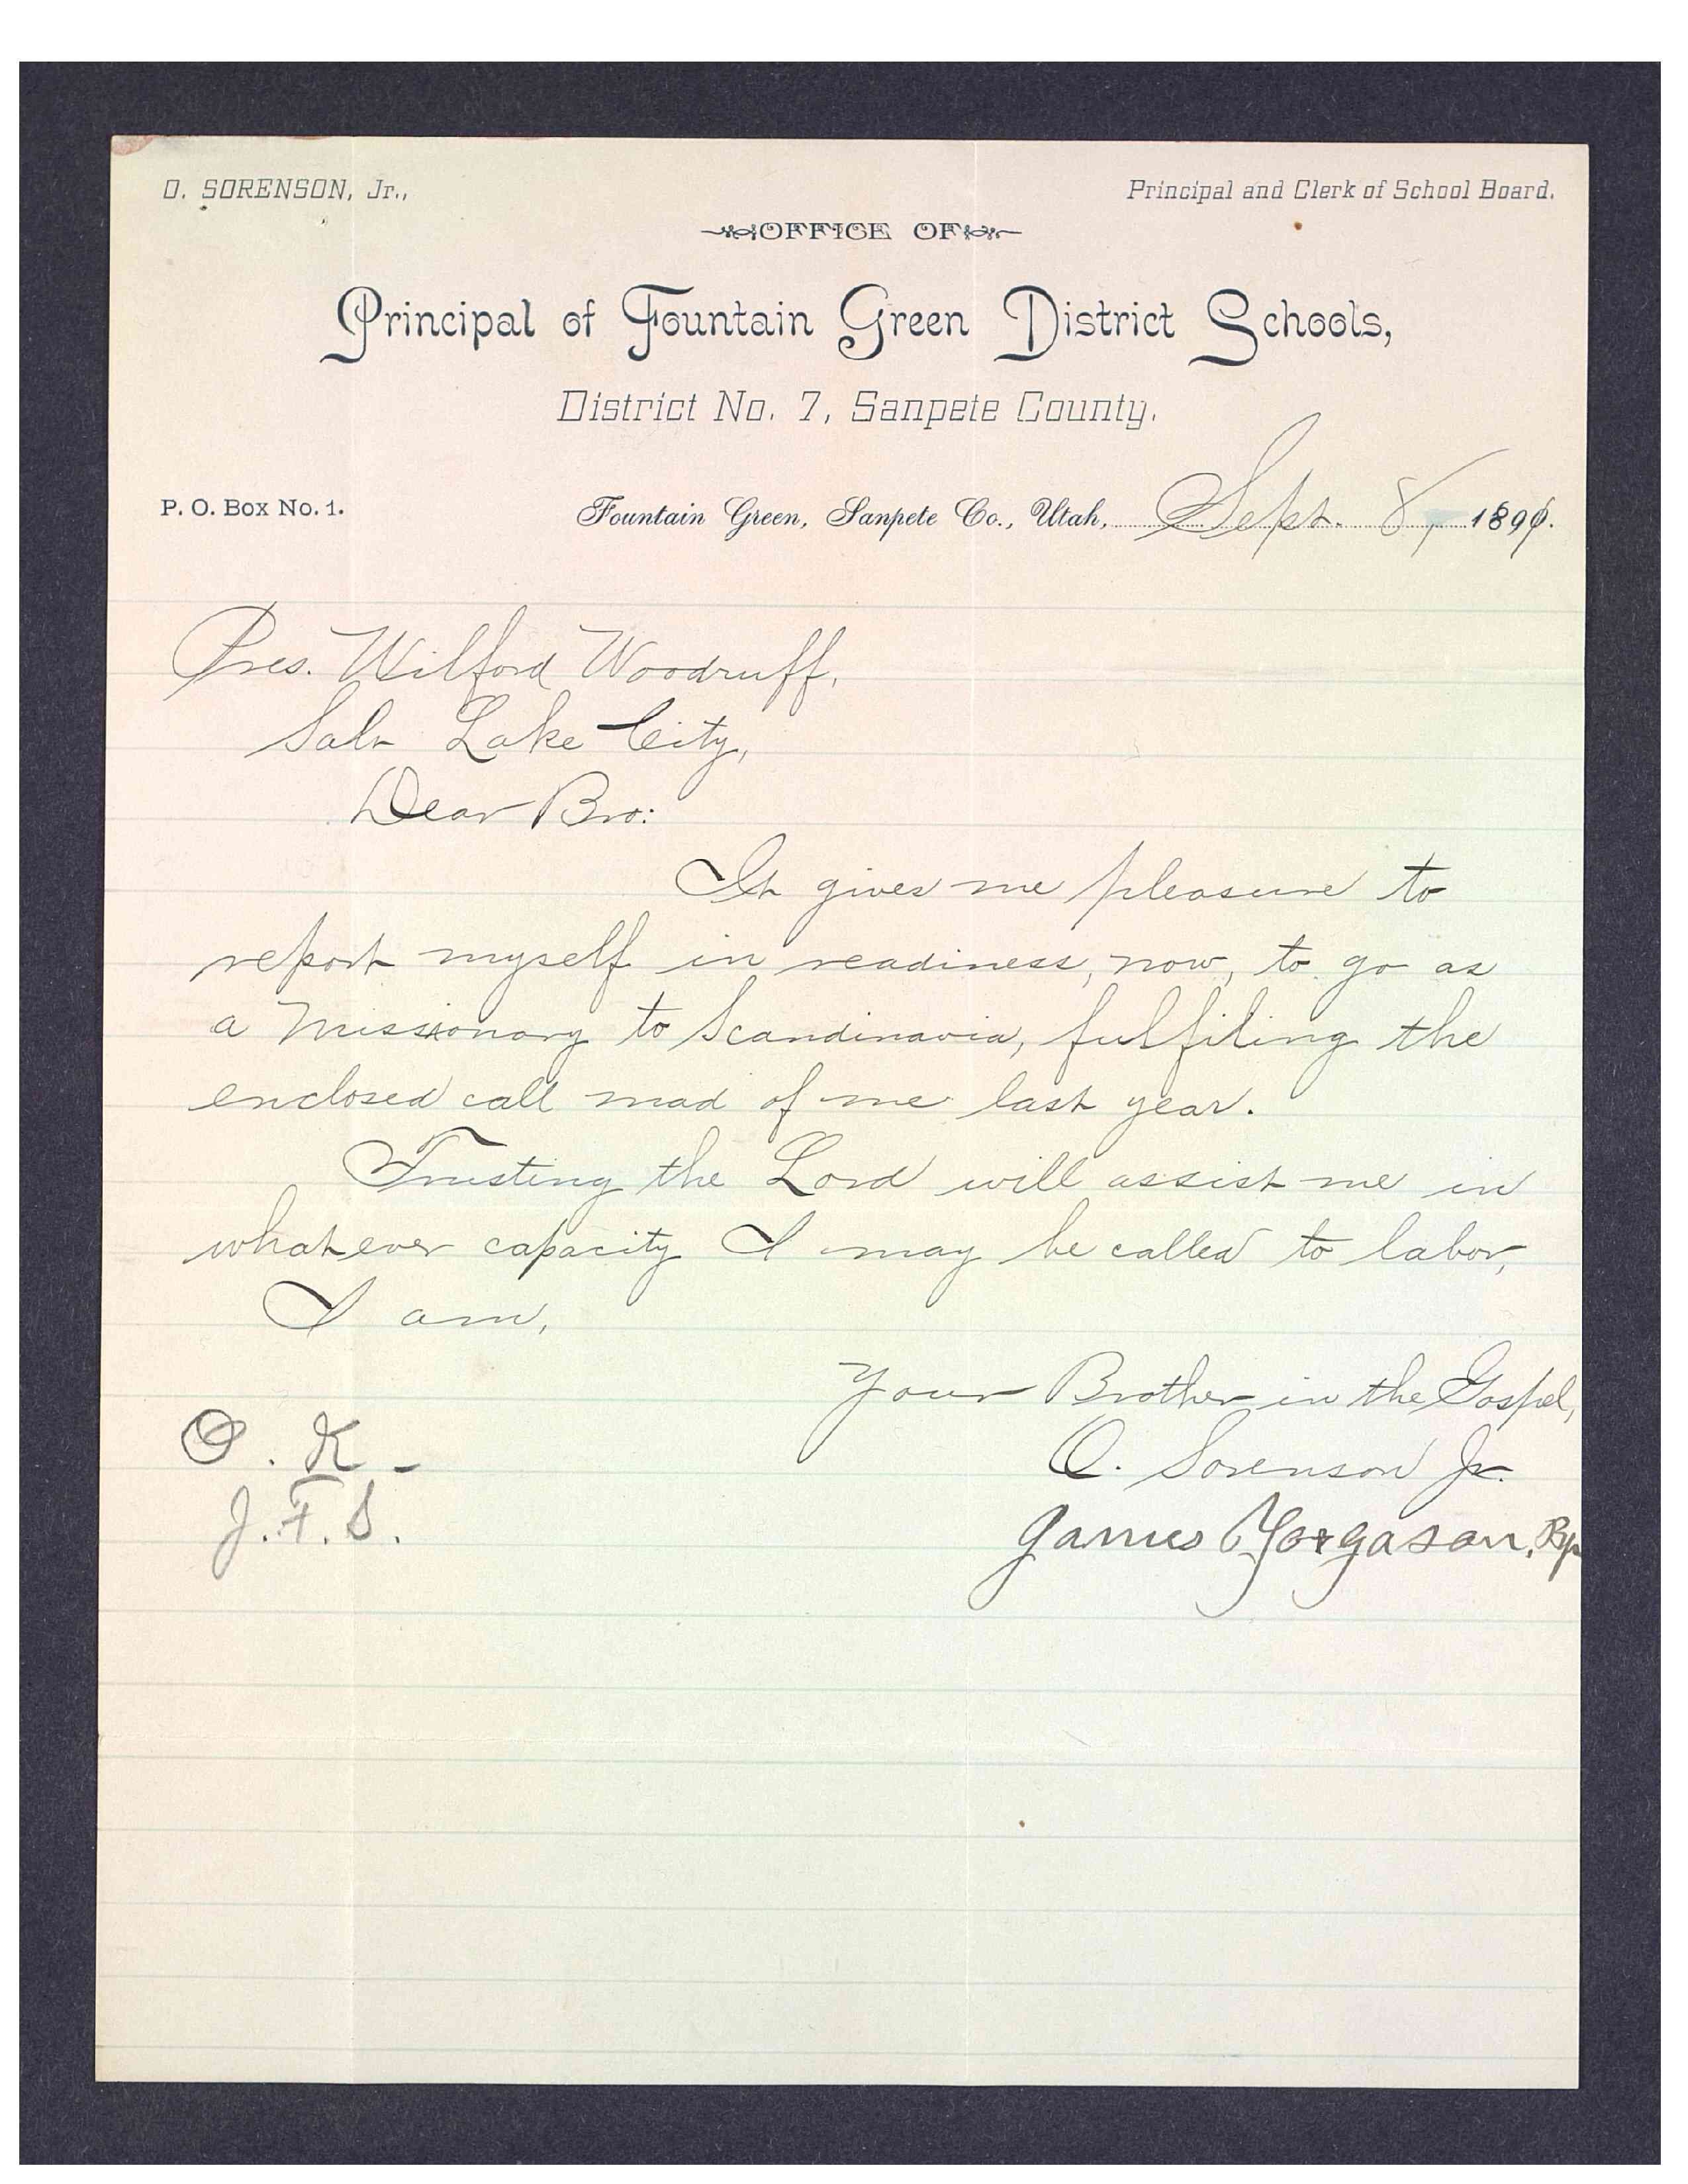 O. SORENSON, Jr.,
Principal and Clerk of School Board.
OFFICE OF
Principal of Fountain Green District Schools,
District No. 7, Sanpete County.
P. O. Box No. 1.
Fountain Green, Sanpete Co., Utah, Sept. 8, 189
Pres. Wilford Woodruff,
Salt Lake City,
Dear Bro:
It gives me pleasure to
report myself in readiness, now, to go as
a missionary to Scandinavia, fulfiling the
enclosed call mad of me last year.
Trusting the Lord will assist me in
whatever capacity I may be called to labor,
I am,
Your Brother in the Gospel,
O. Sorenson Jr.
James Yorgason, Bp
O. K -
J. F. S.